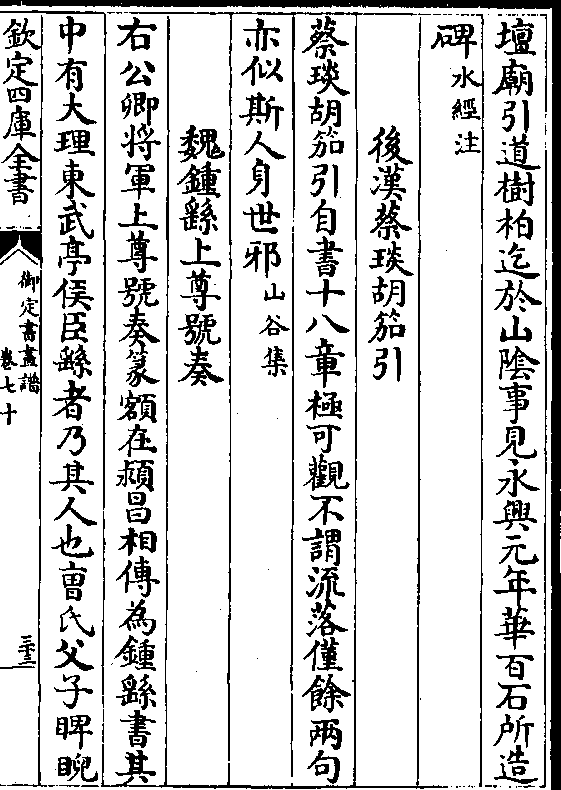 壇廟引道樹柏迄於山陰事見永興元年華百石所造
碑水經注
後漢蔡琰胡笳引
蔡琰胡笳引自書十八章極可觀不謂流落僅餘兩句
亦似斯人身世邪山谷集
魏鍾繇上尊號奏
右公卿將軍上尊號奏篆額在潁昌相傳為鍾繇書其
中有大理東武亭侯臣繇者乃其人也曹氏父子睥睨
欽定四庫全書
御定書畫譜
卷七十
三十三